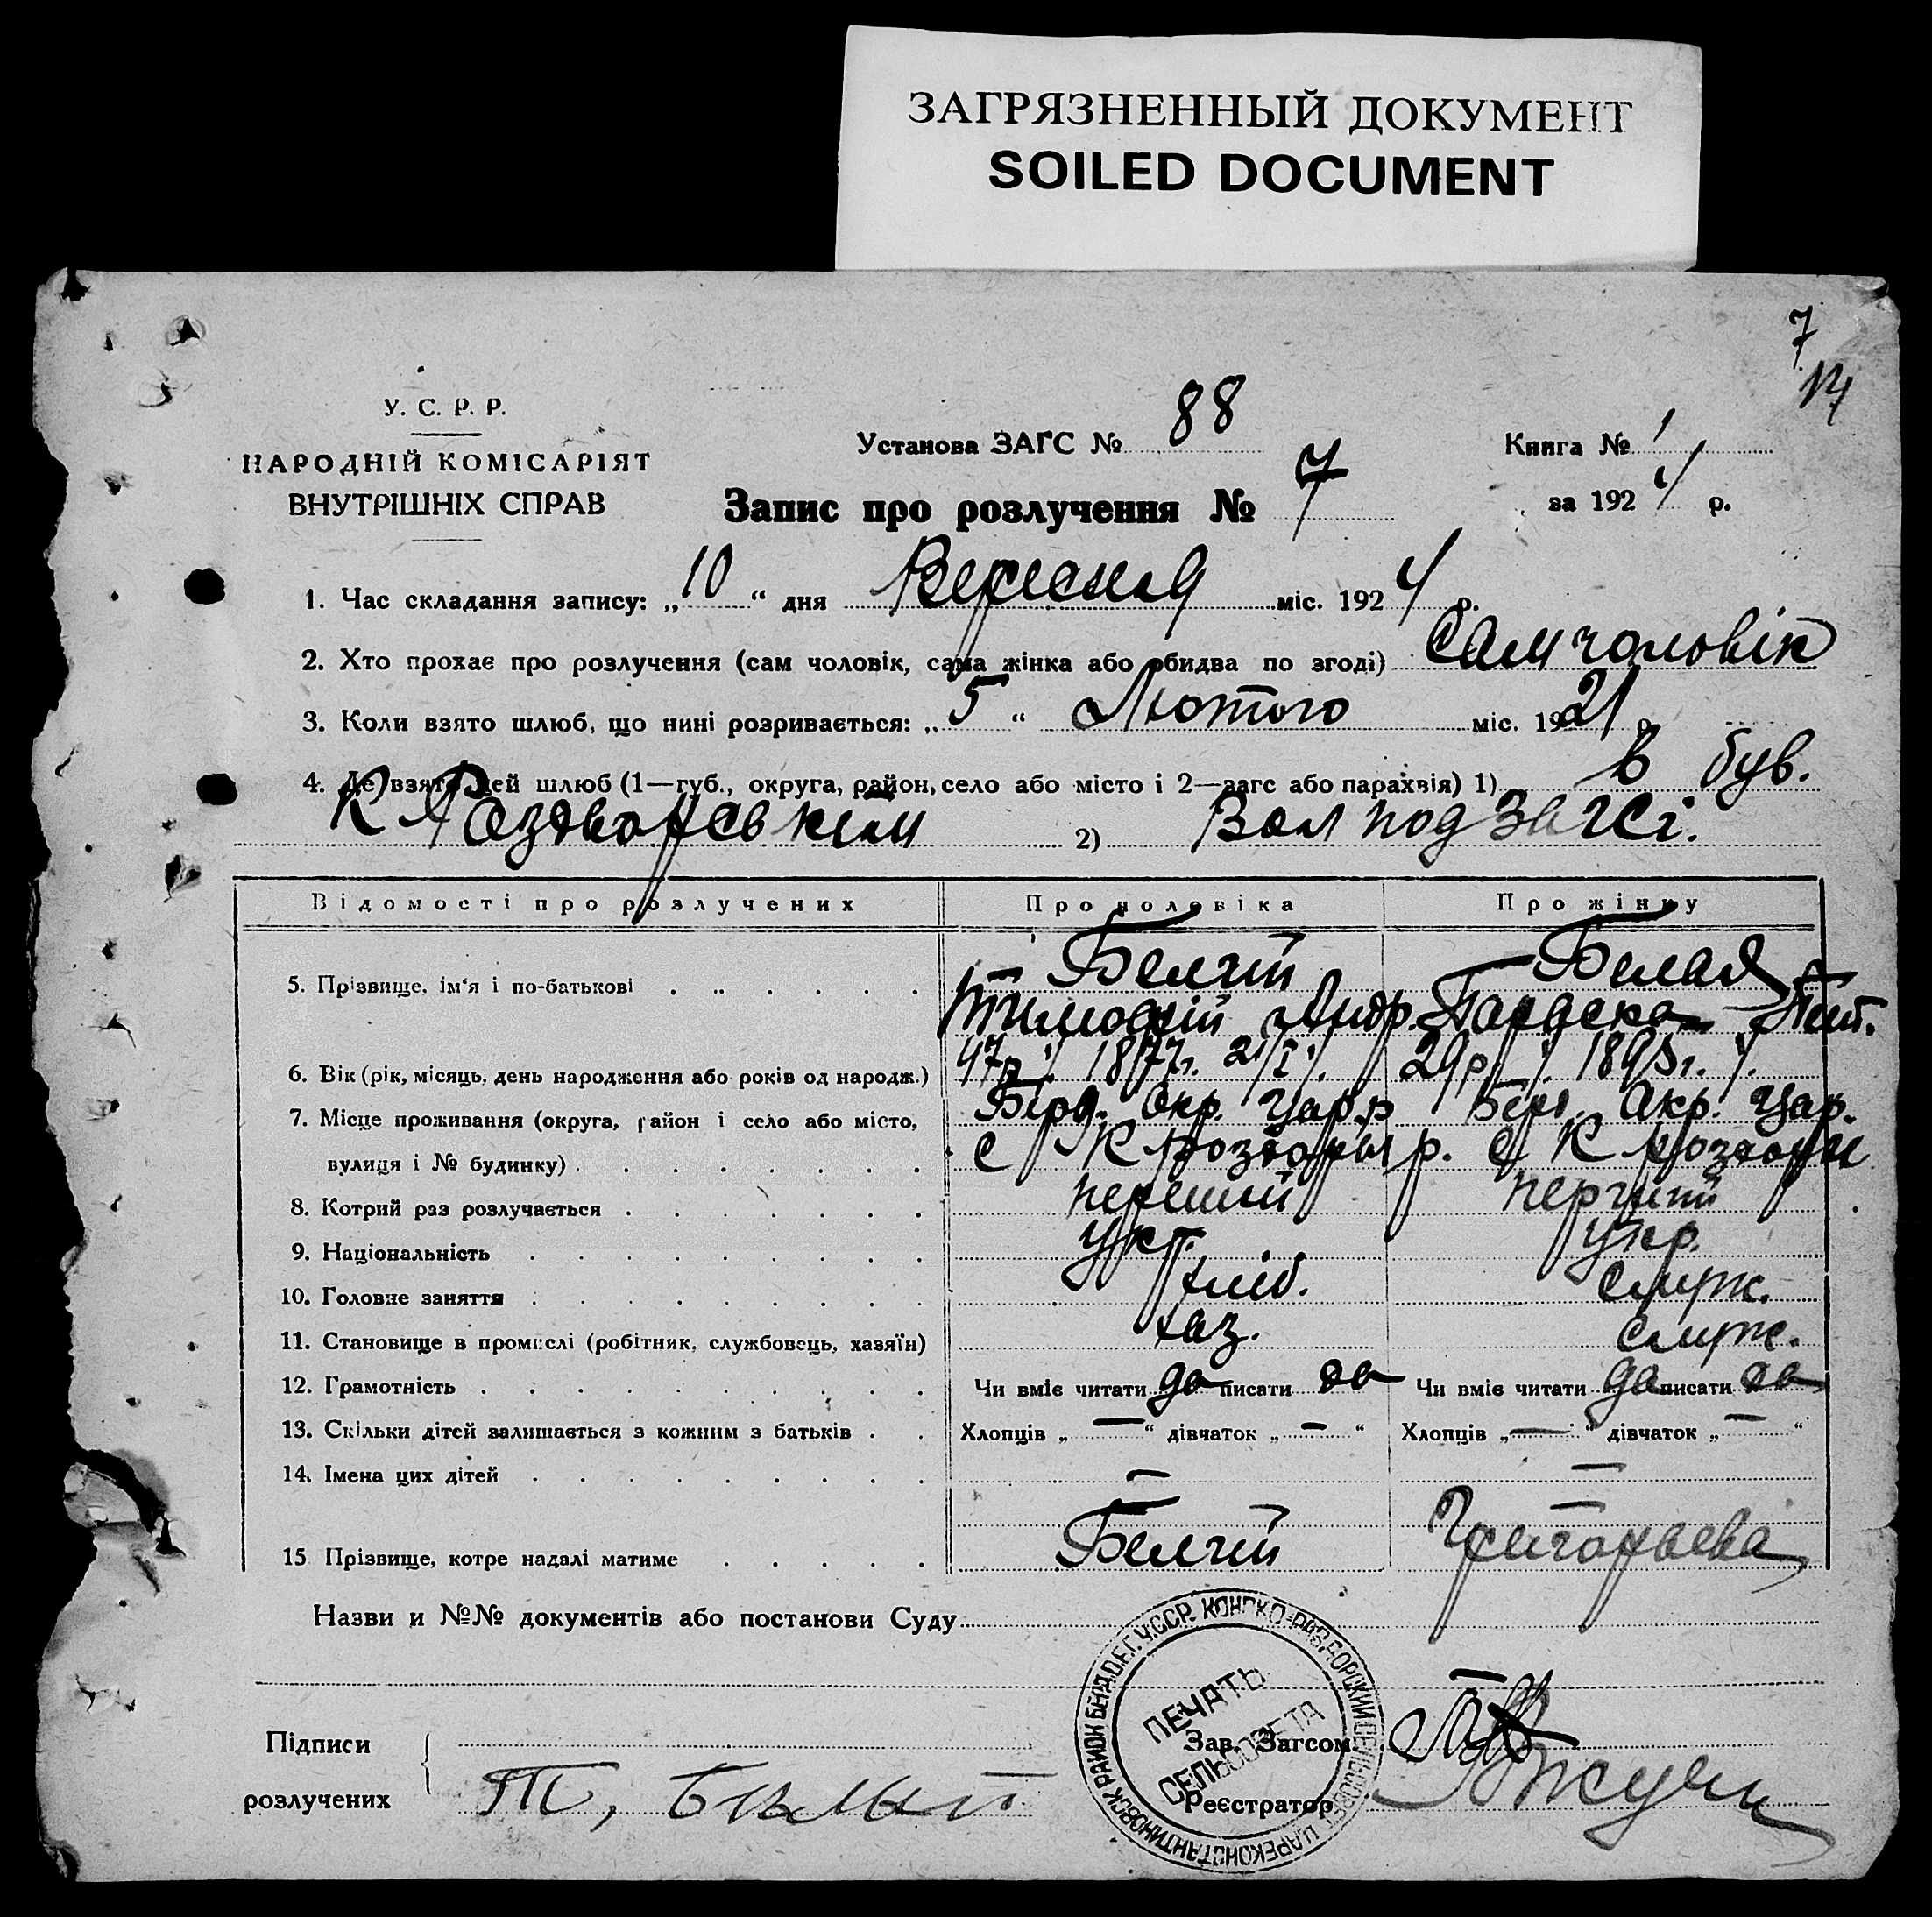 ЗАГРЯЗНЕННЫЙ ДОКУМЕНТ
SOILED DOCUMENT
7
14
У. С. Р. Р.
НАРОДНІЙ КОМІСАРІЯТ
ВНУТРІШНІХ СПРАВ
Установа ЗАГС № 88
Книга № 1
за 1924 р.
Запис про розлучення № 7
1. Час складання запису: „10“ дня Вересня міс. 1924 р.
2. Хто прохає про розлучення (сам чоловік, сама жінка або обидва по згоді) Сам чоловік
3. Коли взято шлюб, що нині розривається: „5“ Лютого міс. 1921 р.
4. Де взято цей шлюб (1—губ., округа, район, село або місто і 2—загс або парахвія) 1) в був.
К Раздоревскім 2) Вол под Загсі.
Відомості про розлучених Про чоловіка Про жінку
5. Прізвище, ім‘я і по-батькові Белчій Белая
Тимофій Андр. Параска
6. Вік (рік, місяць, день народження або років од народж.) 47р 1877г. 21/I 29р 1895г.
7. Місце проживання (округа, район і село або місто, Берд. Окр. Цар. р Берд. Окр. Цар.
вулиця і № будинку) с К Роздоры р. с К Роздори
8. Котрий раз розлучається перший перчий
9. Національність Укр. Укр.
10. Головне заняття хліб. служ.
11. Становище в промислі (робітник, службовець, хазяїн) хаз. служ.
12. Грамотність Чи вміє читати да писати да Чи вміє читати да писати да
13. Скільки дітей залишається з кожним з батьків Хлопців „—“ дівчаток „—“ Хлопців „—“ дівчаток „—“
14. Імена цих дітей — —
15 Прізвище, котре надалі матиме Белчій Григорьева
Назви и №№ документів або постанови Суду
Підписи
розлучених
Т, Белый
Зав. Загсом
Реєстратор
ПЕЧАТЬ
СЕЛЬСОВЕТА
У.ССР. КОНСКО-РАЗДОРСКИЙ СЕЛЬСОВЕТ ЦАРЕКОНСТАНТИНОВСК РАЙОН